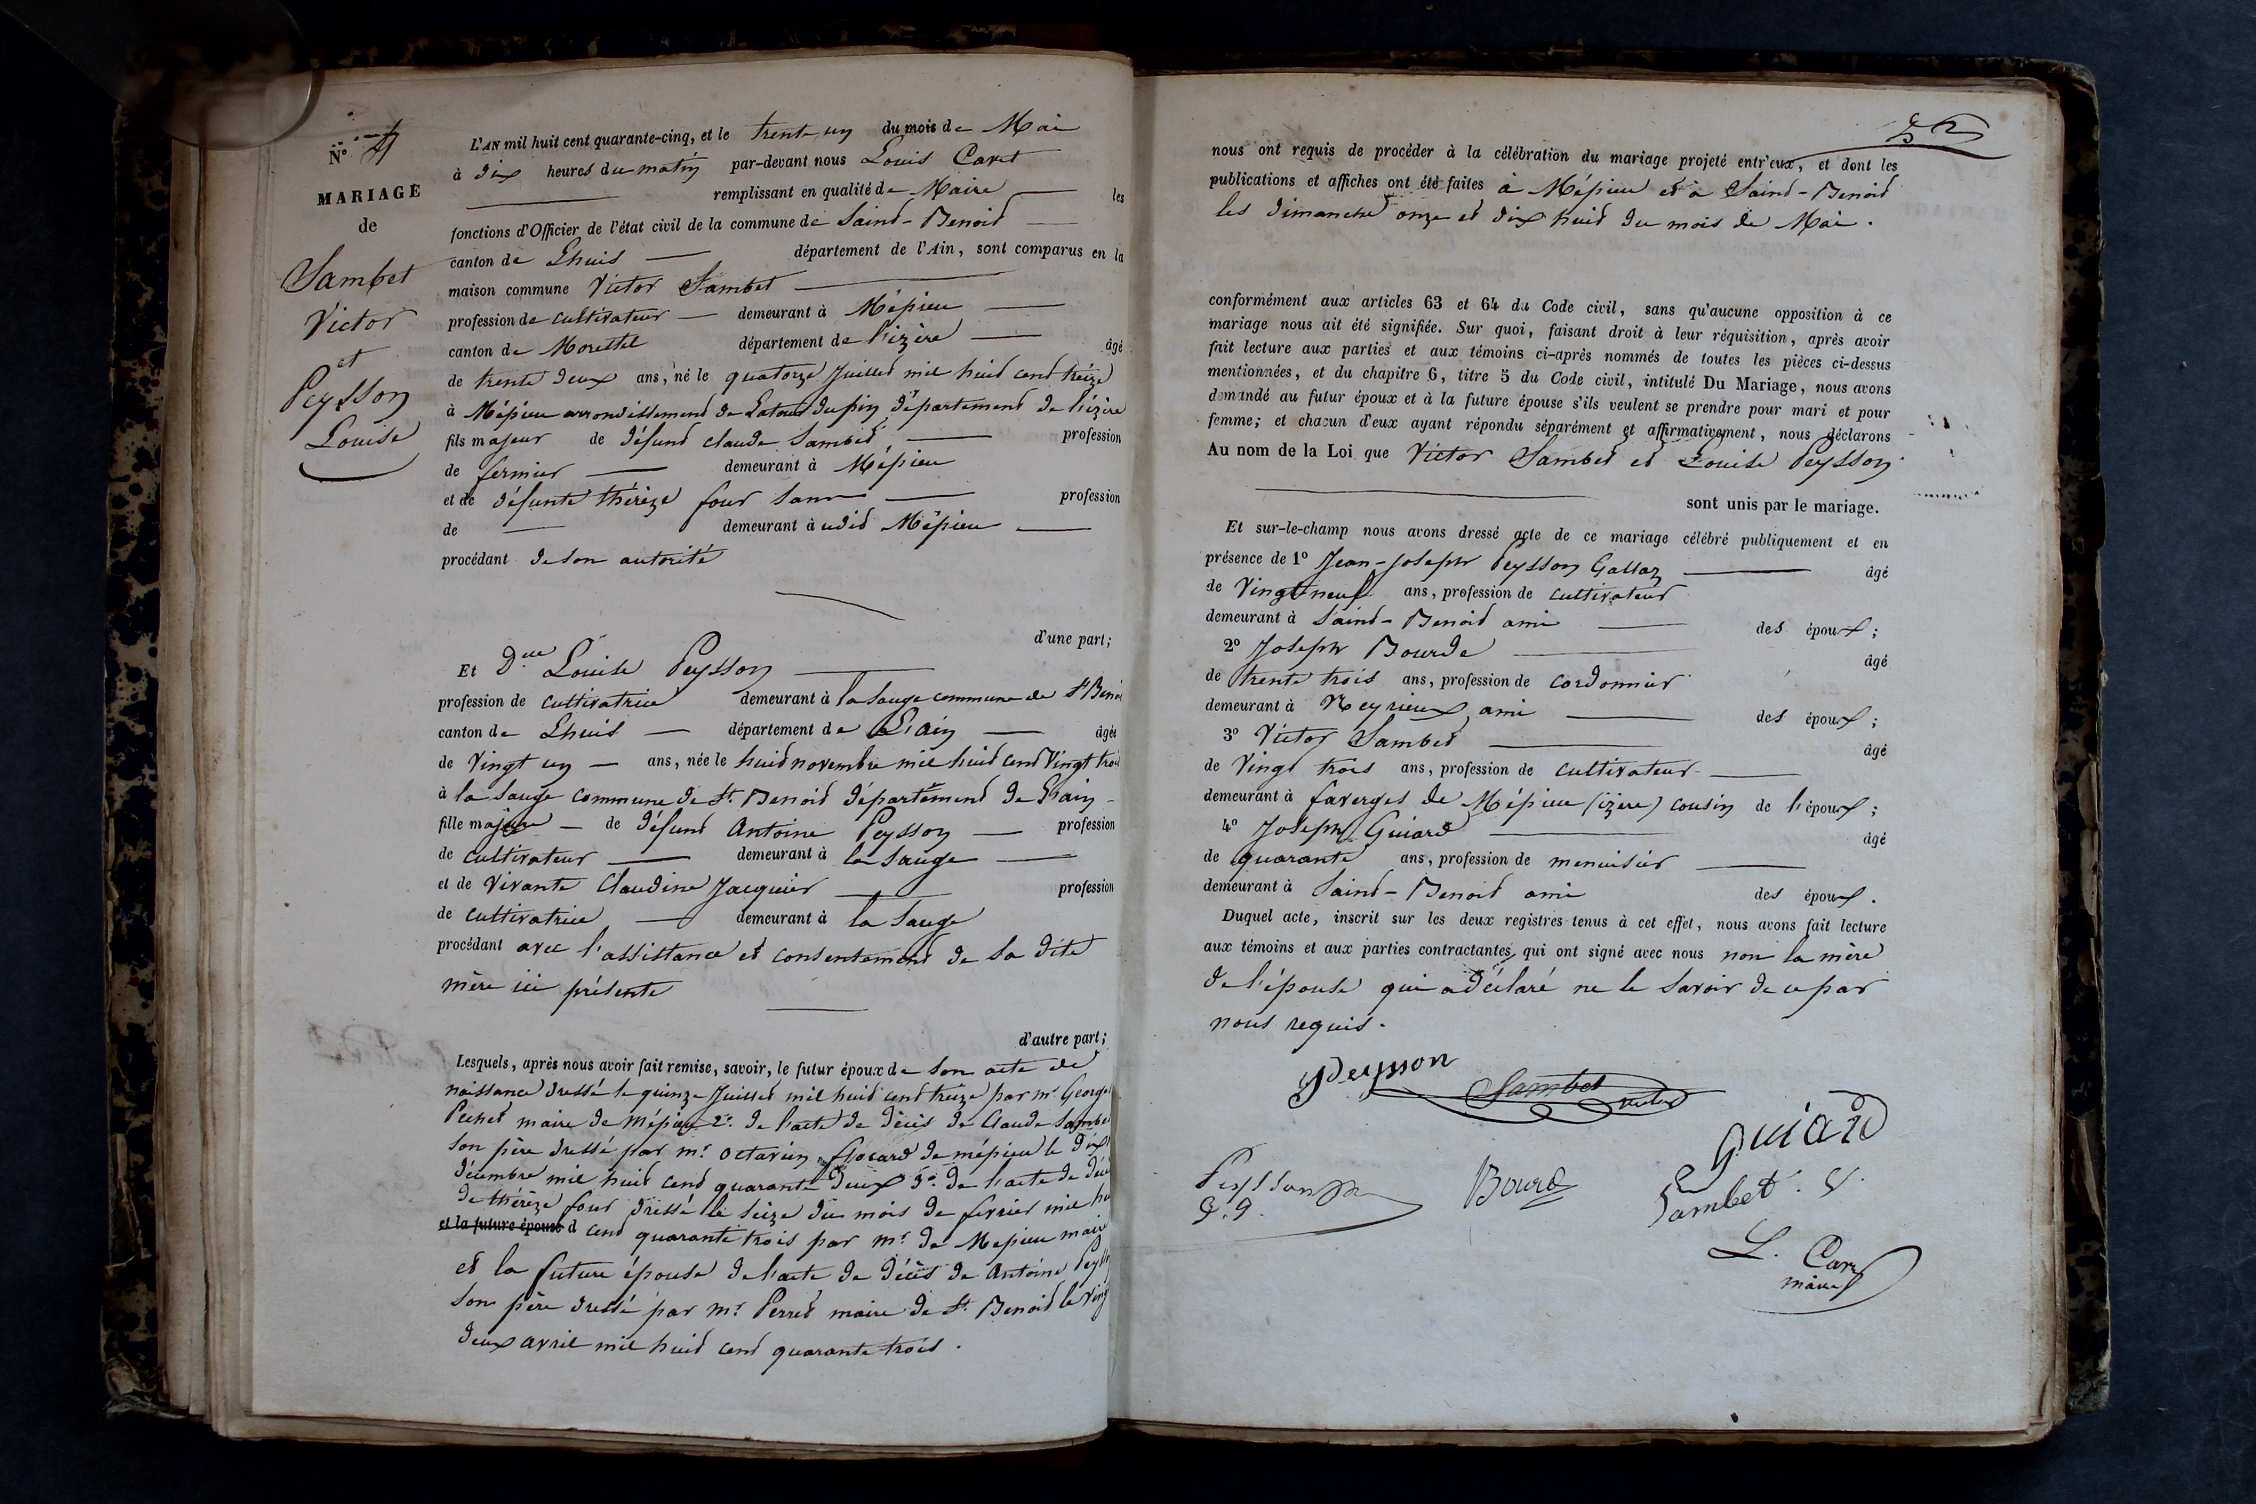 N.° 4
MARIAGE
de
Sambet
Victor
et
Peysson
Louise
L'AN mil huit cent quarante-cinq, et le trente un du mois de Mai
à dix heures du matin par-devant nous Louis Caret
remplissant en qualité de Maire les
fonctions d'Officier de l'état civil de la commune de Saint-Benoit
canton de Lhuis département de l'Ain, sont comparus en la
maison commune Victor Sambet
profession de cultivateur demeurant à Mépieu
canton de Morestel département de l'izère âgé
de trente deux ans, né le quatorze Juillet mil huit cent treize
à Mépieu arrondissement de Latour du pin département de l'izère
fils majeur de défunt claude Sambet, profession
de fermier demeurant à Mépieu
et de défunte thérèze four sans profession
de demeurant à udit Mépieu
procédant de son autorité
d'une part;
Et D.lle Louise Peysson
profession de cultivatrice demeurant à la Sauge commune de St Benoi
canton de Lhuis département de L'ain âgée
de Vingt un ans, née le huit novembre mil huit cent Vingt trois
à la Sauge commune de St. Benoit département de L'ain
fille majeure de défunt Antoine Peysson profession
de cultivateur demeurant à la Sauge
et de Vivante Claudine Jacquier profession
de cultivatrice demeurant à la Sauge
procédant avec l'assistance et consentement de sa dite
mère ici présente
d'autre part;
Lesquels, après nous avoir fait remise, savoir, le futur époux de son acte de
naissance dressé le quinze Juillet mil huit cent treize par mr. George
Pechet maire de mépieu 2.° de l'acte de décès de Claude Sambet
son père dressé par mr. octavien flocard de mépieu le dix
décembre mil huit cent quarante deux 3.° de l'acte de décè
de thérèze four dressé le seize du mois de février mil hu
et la future épouse d cent quarante trois par mr. de Mepieu maire
et la future épouse de l'acte de décès de Antoine Peyss
son père dressé par mr. Perret maire de St. Benoit le Ving
deux avril mil huit cent quarante trois.
52
nous ont requis de procéder à la célébration du mariage projeté entr'eux, et dont les
publications et affiches ont été faites à Mépieu et à Saint-Benoit
les dimanche onze et dix huit du mois de Mai.
conformément aux articles 63 et 64 du Code civil, sans qu'aucune opposition à ce
mariage nous ait été signifiée. Sur quoi, faisant droit à leur réquisition, après avoir
fait lecture aux parties et aux témoins ci-après nommés de toutes les pièces ci-dessus
mentionnées, et du chapitre 6, titre 5 du Code civil, intitulé Du Mariage, nous avons
demandé au futur époux et à la future épouse s'ils veulent se prendre pour mari et pour
femme; et chacun d'eux ayant répondu séparément et affirmativement, nous déclarons
Au nom de la Loi que Victor Sambet et Louise Peysson
sont unis par le mariage.
Et sur-le-champ nous avons dressé acte de ce mariage célébré publiquement et en
présence de 1° Jean-Joseph Peysson Gallaz âgé
de Vingt neuf ans, profession de cultivateur
demeurant à Saint-Benoit ami des époux;
2° Joseph Bourde âgé
de trente trois ans, profession de cordonnier
demeurant à Meyrieux ami des époux;
3° Victor Sambet âgé
de Vingt trois ans, profession de cultivateur
demeurant à faverges de Mépieu (izère) cousin de l'époux;
4° Joseph Guiard âgé
de quarante ans, profession de menuisier
demeurant à Saint-Benoit ami des époux.
Duquel acte, inscrit sur les deux registres tenus à cet effet, nous avons fait lecture
aux témoins et aux parties contractantes, qui ont signé avec nous non la mère
de l'épouse qui a déclaré ne le savoir de ce par
nous requis.
Peysson
Sambet
victor
Guiard
Peysson
J. g.
Bourd
Sambet. V.
L. Caret
maire